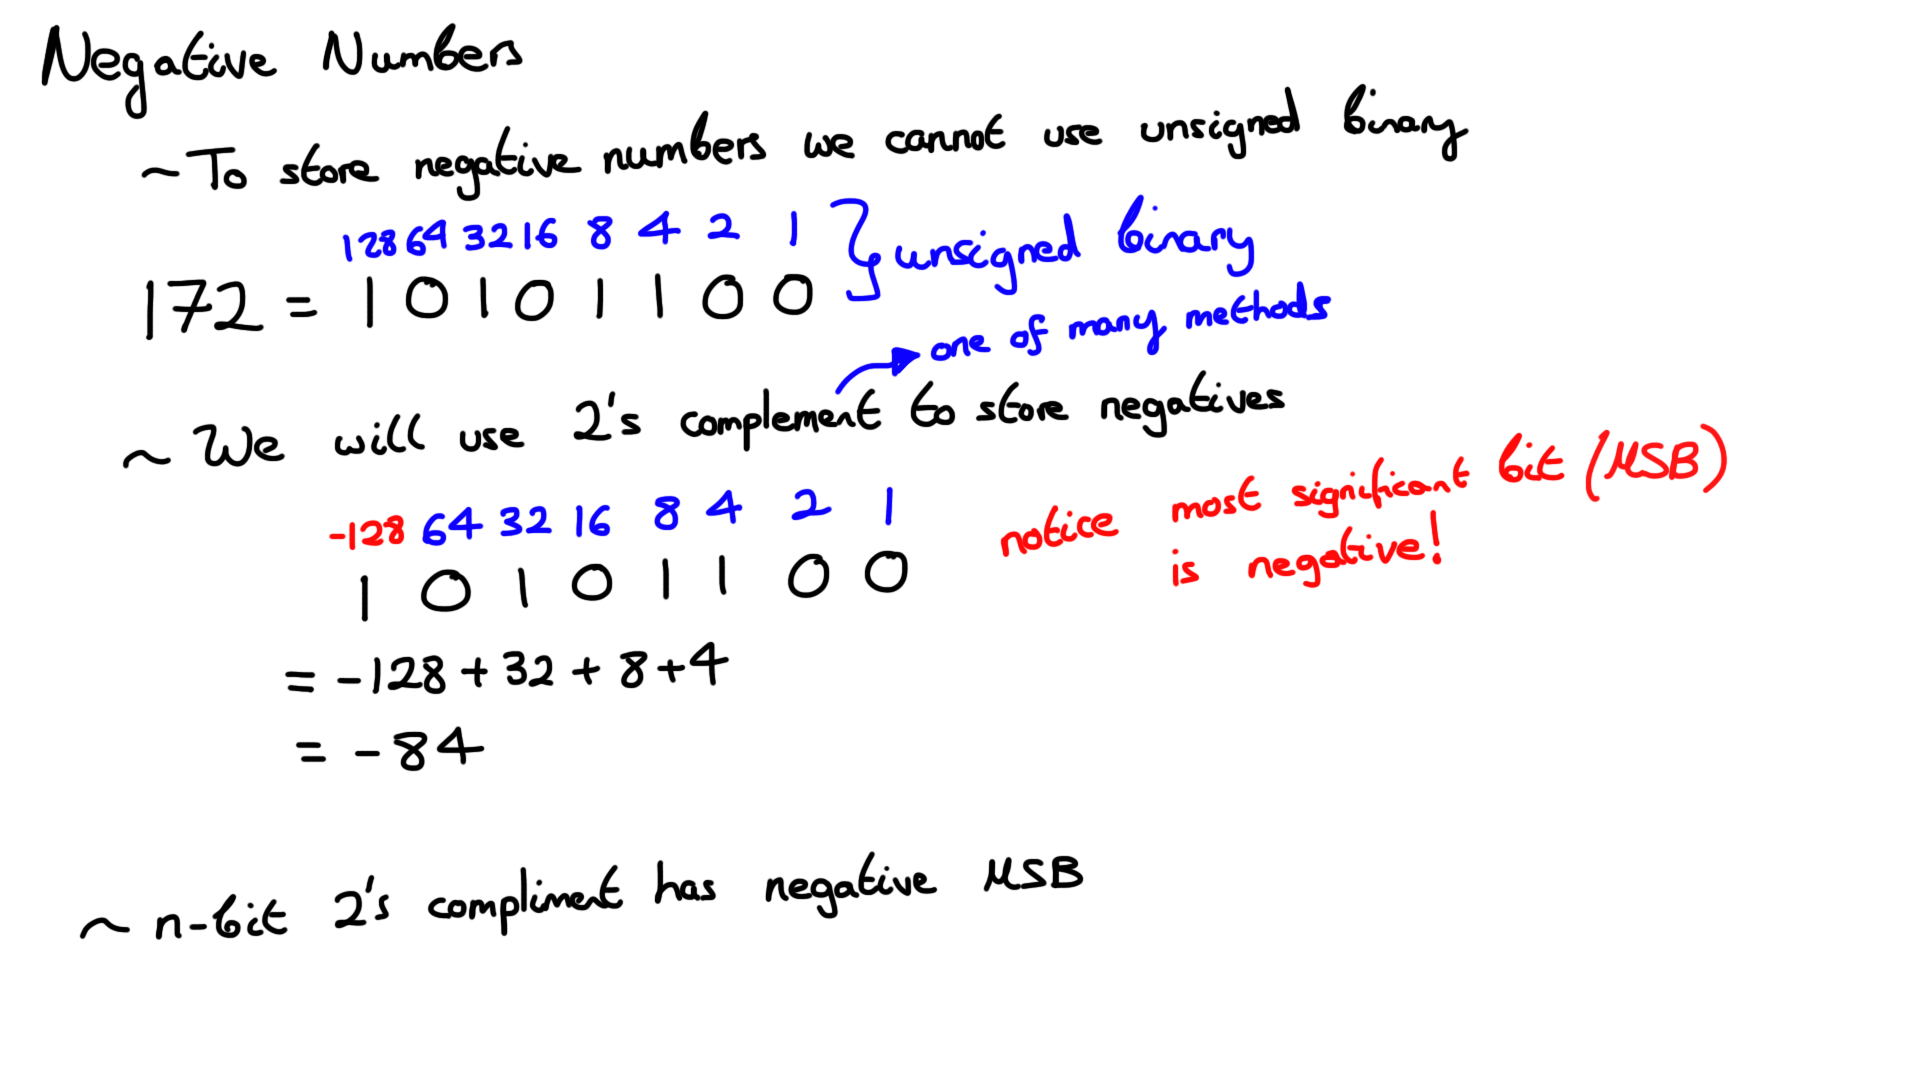 Negative Numbers
~ To store negative numbers we cannot use unsigned binary
128 64 32 16 8 4 2 1 } unsigned binary
172 = 1 0 1 0 1 1 0 0
one of many methods
~ We will use 2's complement to store negatives
-128 64 32 16 8 4 2 1
1 0 1 0 1 1 0 0
notice most significant bit (MSB)
is negative!
= -128 + 32 + 8 + 4
= -84
~ n-bit 2's compliment has negative MSB